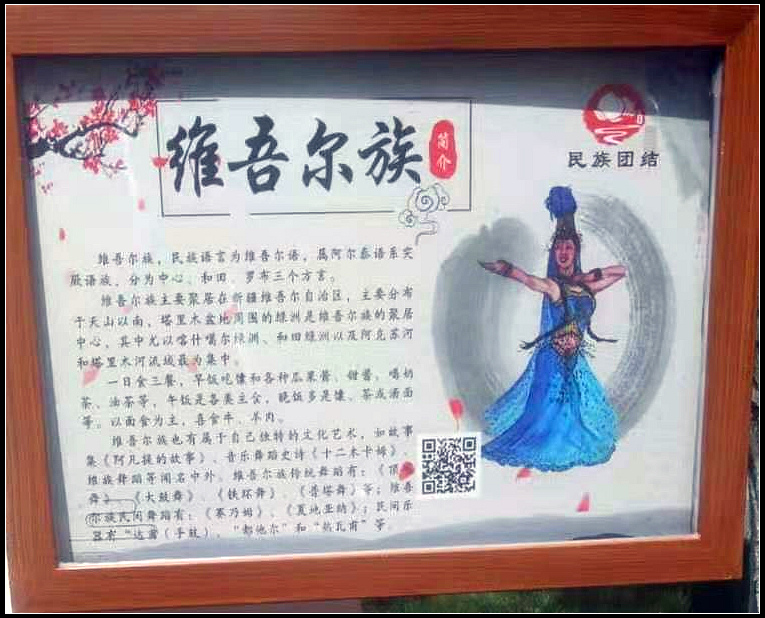 维吾尔族
简介
民族团结
维吾尔族，民族语言为维吾尔语，属阿尔泰语系突
厥语族，分为中心、和田、罗布三个方言。
维吾尔族主要聚居在新疆维吾尔自治区，主要分布
于天山以南，塔里木盆地周围的绿洲是维吾尔族的聚居
中心，其中尤以喀什噶尔绿洲、和田绿洲以及阿克苏河
和塔里木河流域最为集中。
一日食三餐，早饭吃馕和各种瓜果酱、甜酱，喝奶
茶、油茶等，午饭是各类主食，晚饭多是馕、茶或汤面
等。以面食为主，喜食牛、羊肉。
维吾尔族也有属于自己独特的文化艺术，如故事
集《阿凡提的故事》、音乐舞蹈史诗《十二木卡姆》、
维族舞蹈等闻名中外。维吾尔族传统舞蹈有：《顶
舞》、《大鼓舞》、《铁环舞》、《普塔舞》等；维吾
尔族民间舞蹈有：《赛乃姆》、《夏地亚纳》；民间乐
器有“达甫（手鼓）、“都他尔”和“热瓦甫”等